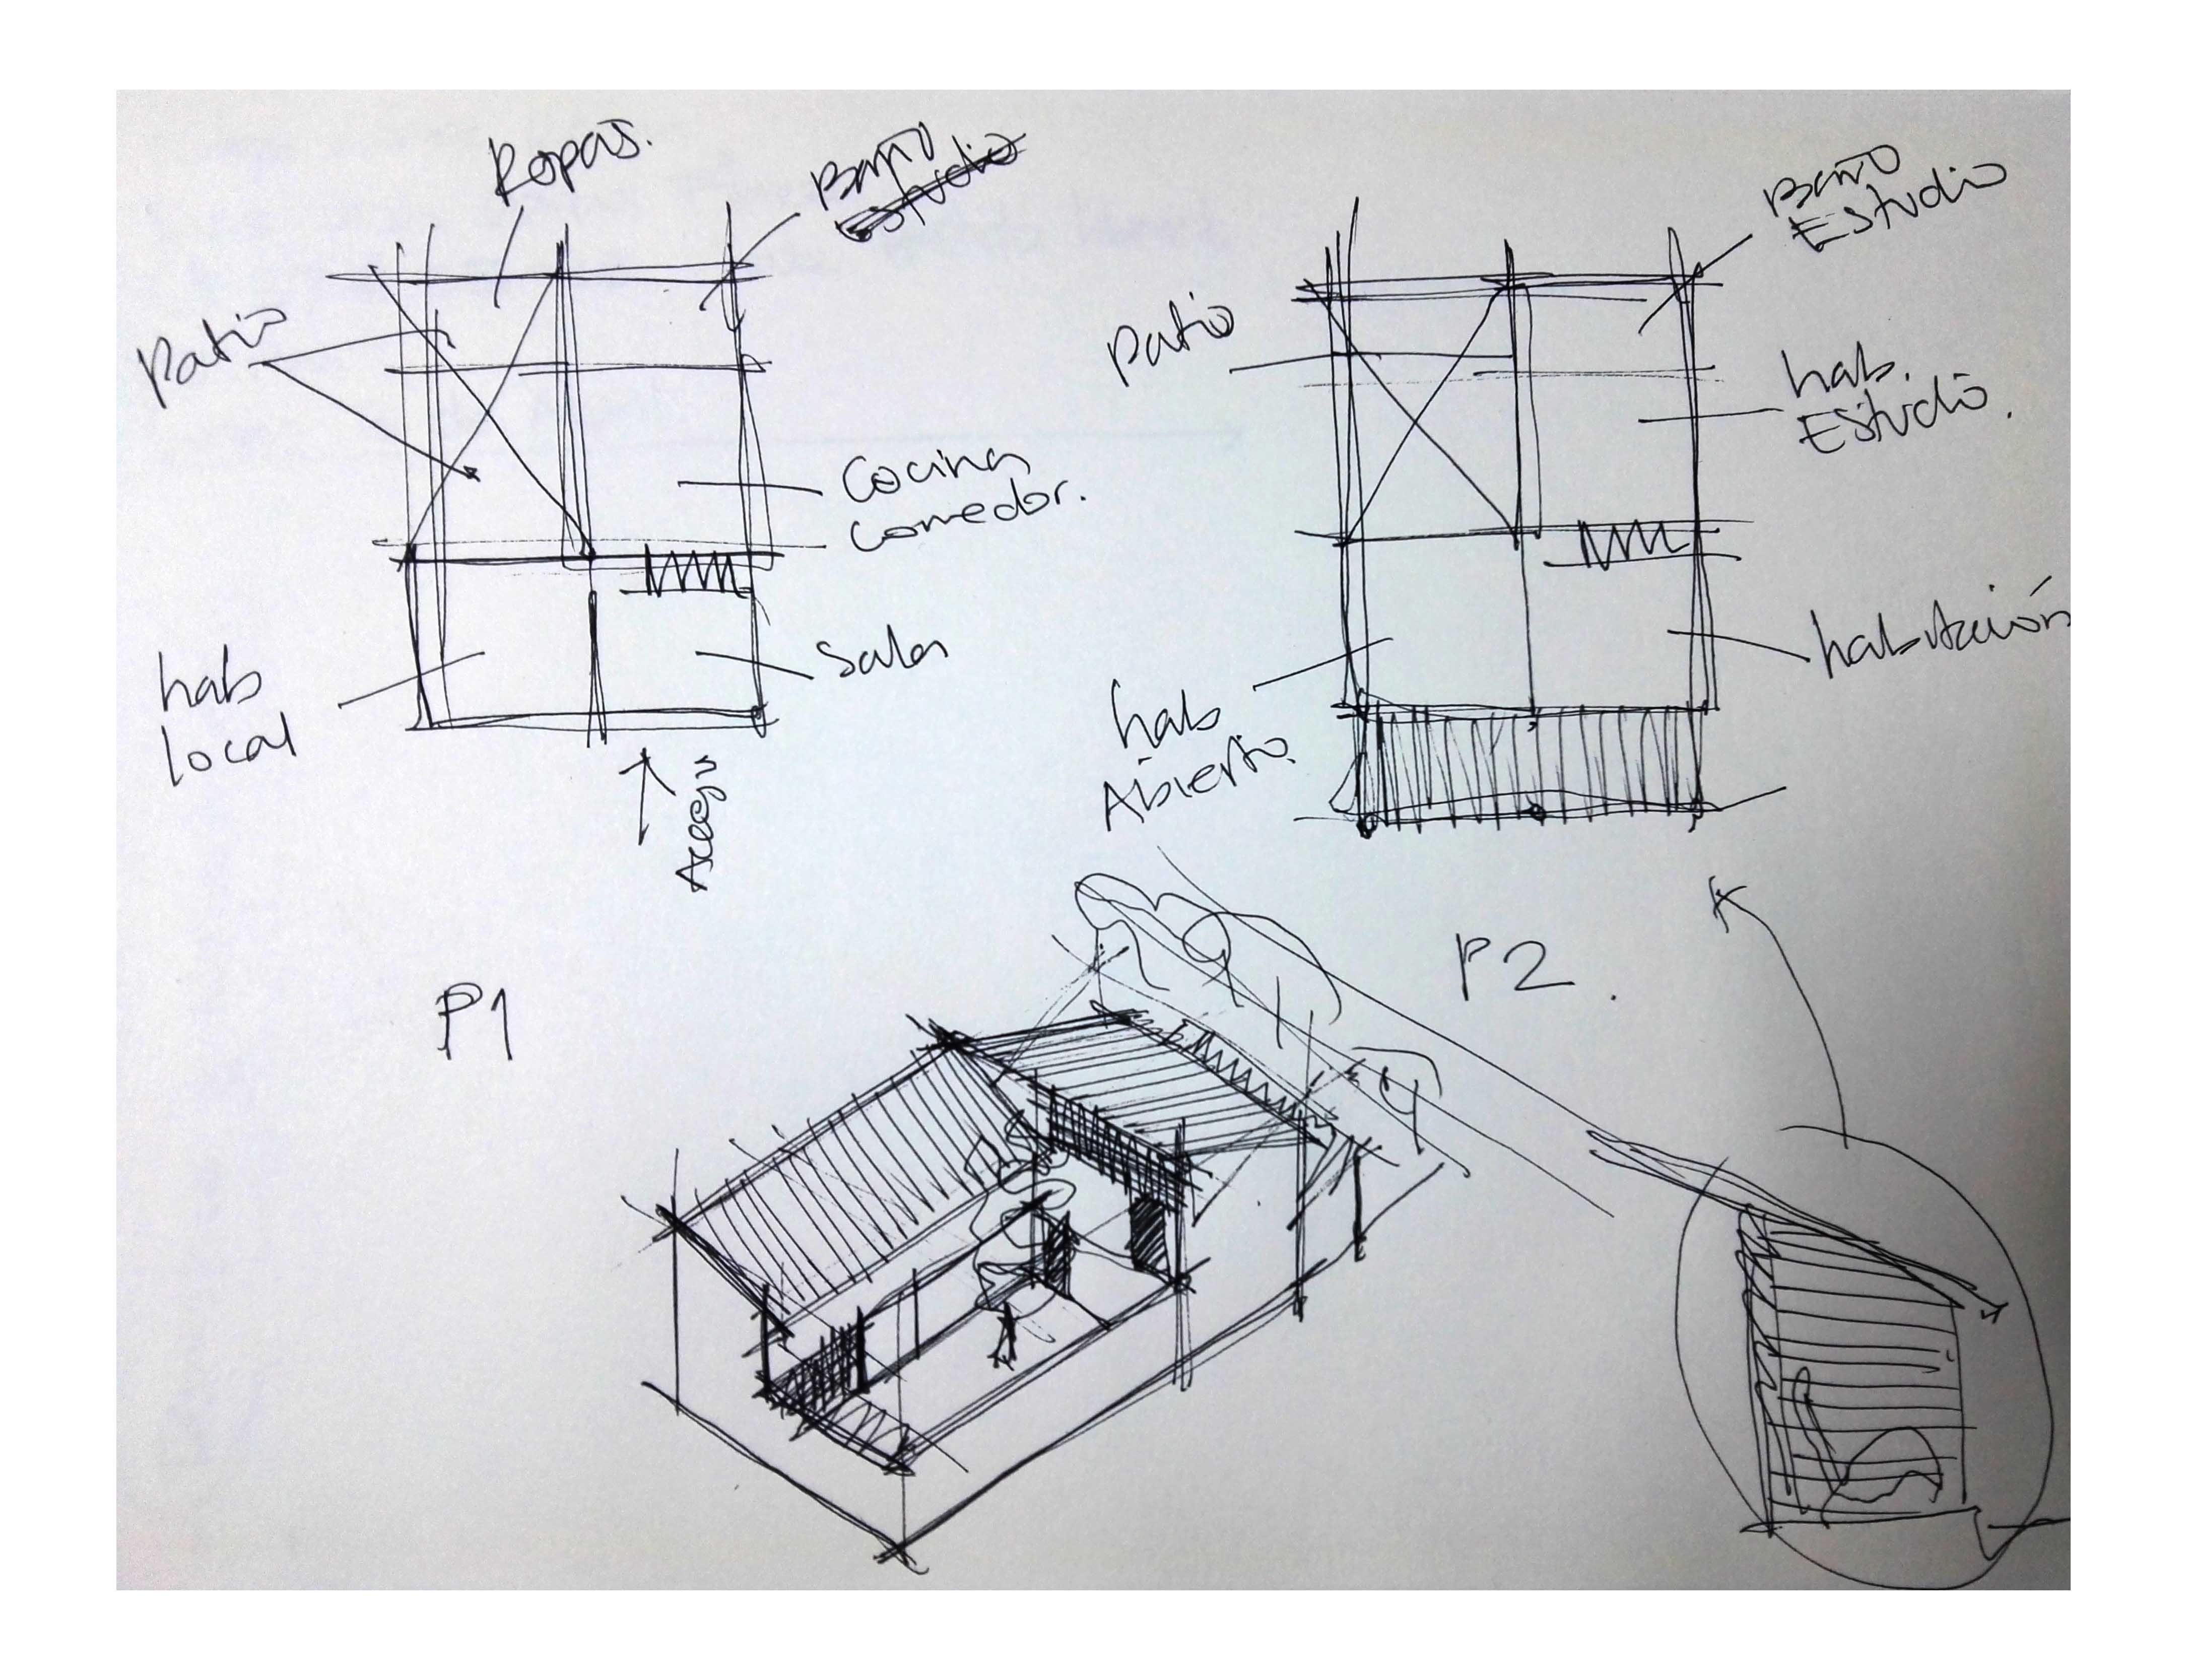 Ropas.
Baño
Estudio
Patio
Cocina
comedor.
hab
local
Sala
Acceso
P1
Baño
Estudio
Patio
hab.
Estudio.
hab
Abierto.
habitación
P2.